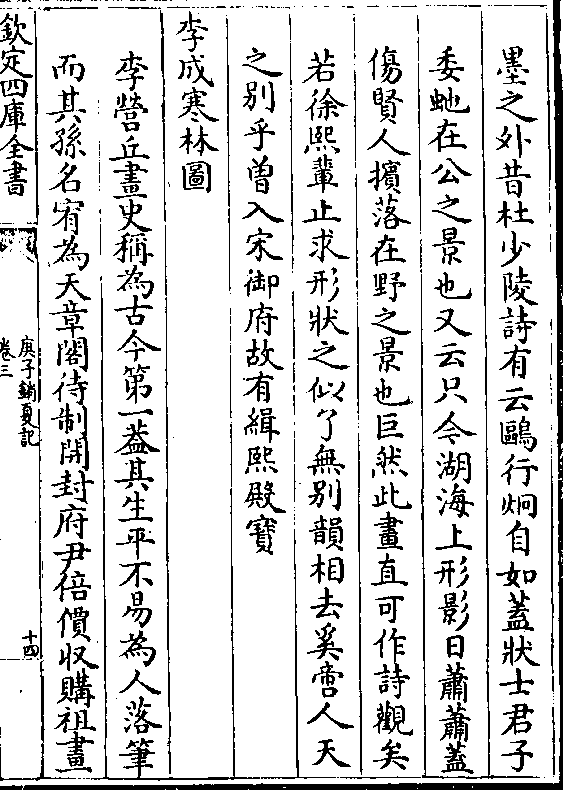 墨之外昔杜少陵詩有云鷗行炯自如蓋狀士君子
委虵在公之景也又云只今湖海上形影日蕭蕭蓋
傷賢人擯落在野之景也巨然此畫直可作詩觀矣
若徐熙輩止求形狀之似了無别韻相去奚啻人天
之别乎曽入宋御府故有緝熙殿寳
李成寒林圖
李營丘畫史稱為古今第一葢其生平不易為人落筆
而其孫名宥為天章閣待制開封府尹倍價収購祖畫
欽定四庫全書
庚子銷夏記
卷三
十四